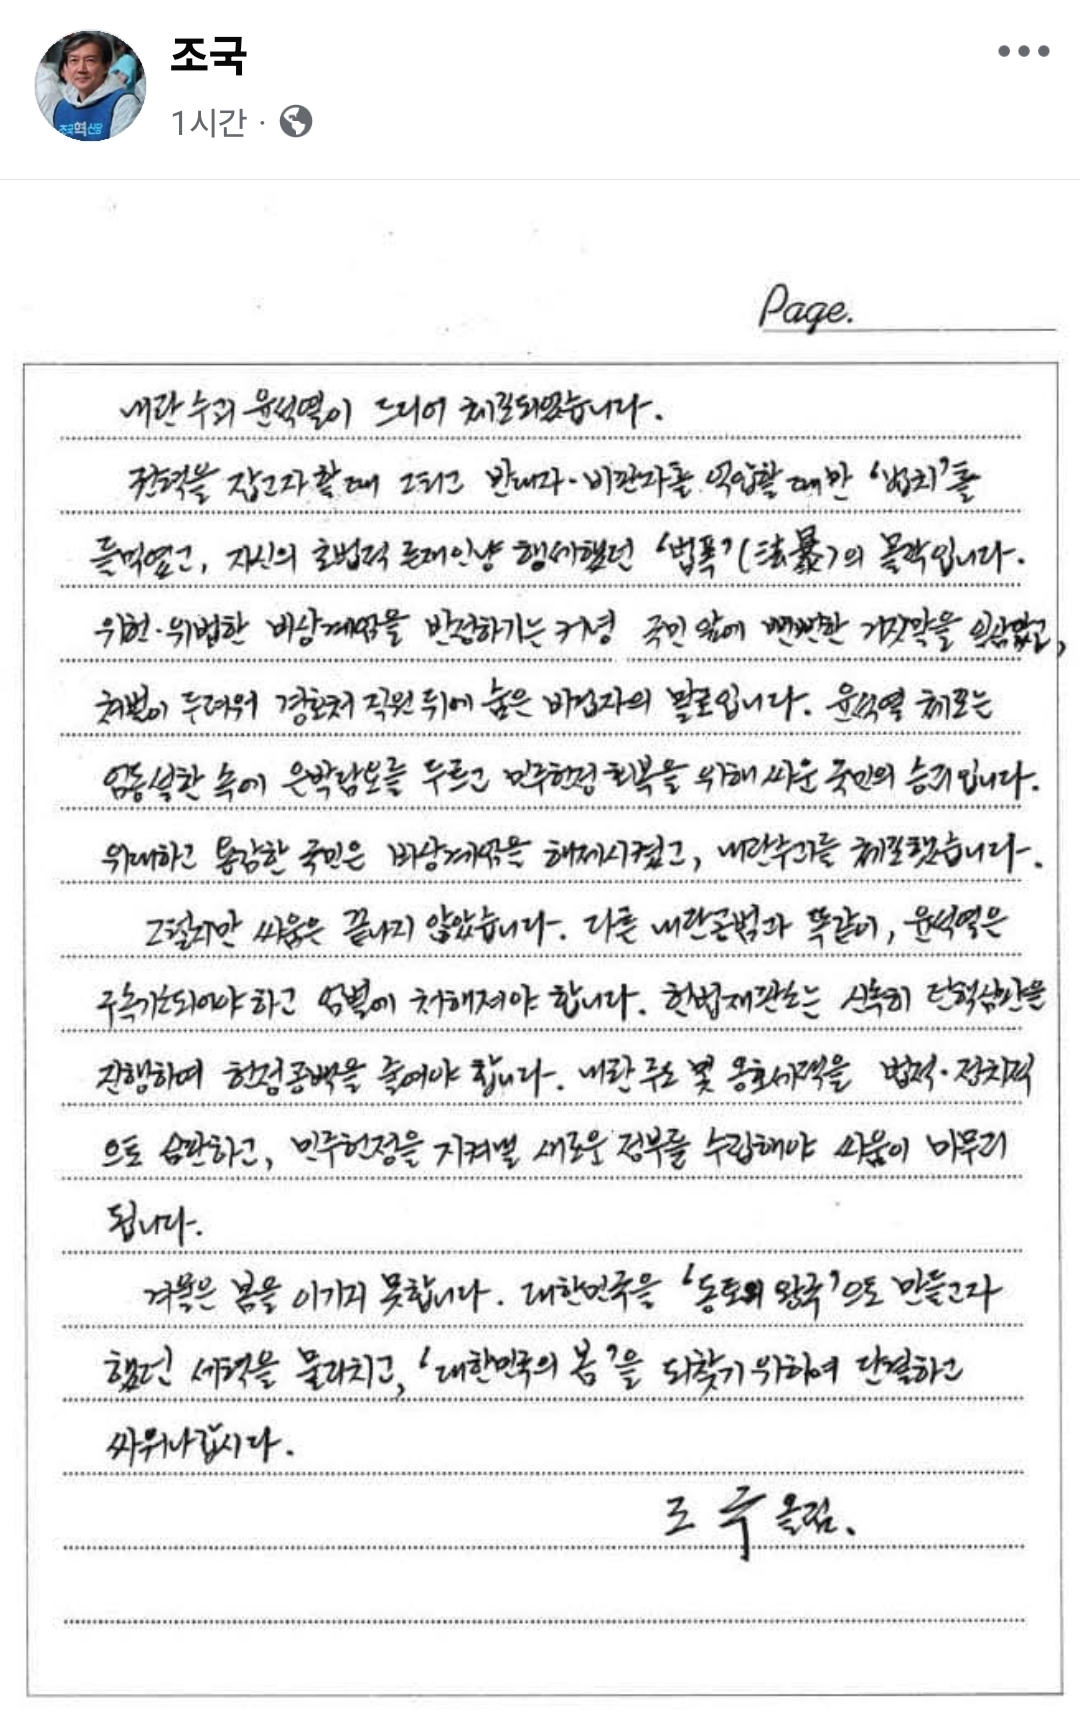 조국
1시간 ·
조국혁신당
Page.
내란 수괴 윤석열이 드디어 체포되었습니다.
권력을 잡고자 할 때 그리고 반대자·비판자를 억압할 때만 '법치'를
들먹였고, 자신의 초법적 존재인냥 행세했던 '법폭'(法暴)의 몰락입니다.
위헌·위법한 비상계엄을 반성하기는 커녕 국민 앞에 뻔뻔한 거짓말을 일삼았고,
처벌이 두려워 경호처 직원 뒤에 숨은 비겁자의 말로입니다. 윤석열 체포는
엄동설한 속에 은박담요를 두르고 민주헌정 회복을 위해 싸운 국민의 승리입니다.
위대하고 용감한 국민은 비상계엄을 해제시켰고, 내란수괴를 체포했습니다.
그렇지만 싸움은 끝나지 않았습니다. 다른 내란공범과 똑같이, 윤석열은
구속기소되어야 하고 엄벌에 처해져야 합니다. 헌법재판소는 신속히 탄핵심판을
진행하여 헌정공백을 줄여야 합니다. 내란 주도 및 옹호세력을 법적·정치적
으로 심판하고, 민주헌정을 지켜낼 새로운 정부를 수립해야 싸움이 마무리
됩니다.
겨울은 봄을 이기지 못합니다. 대한민국을 '동토의 왕국'으로 만들고자
했던 세력을 물리치고, '대한민국의 봄'을 되찾기 위하여 단결하고
싸워나갑시다.
조국 올림.